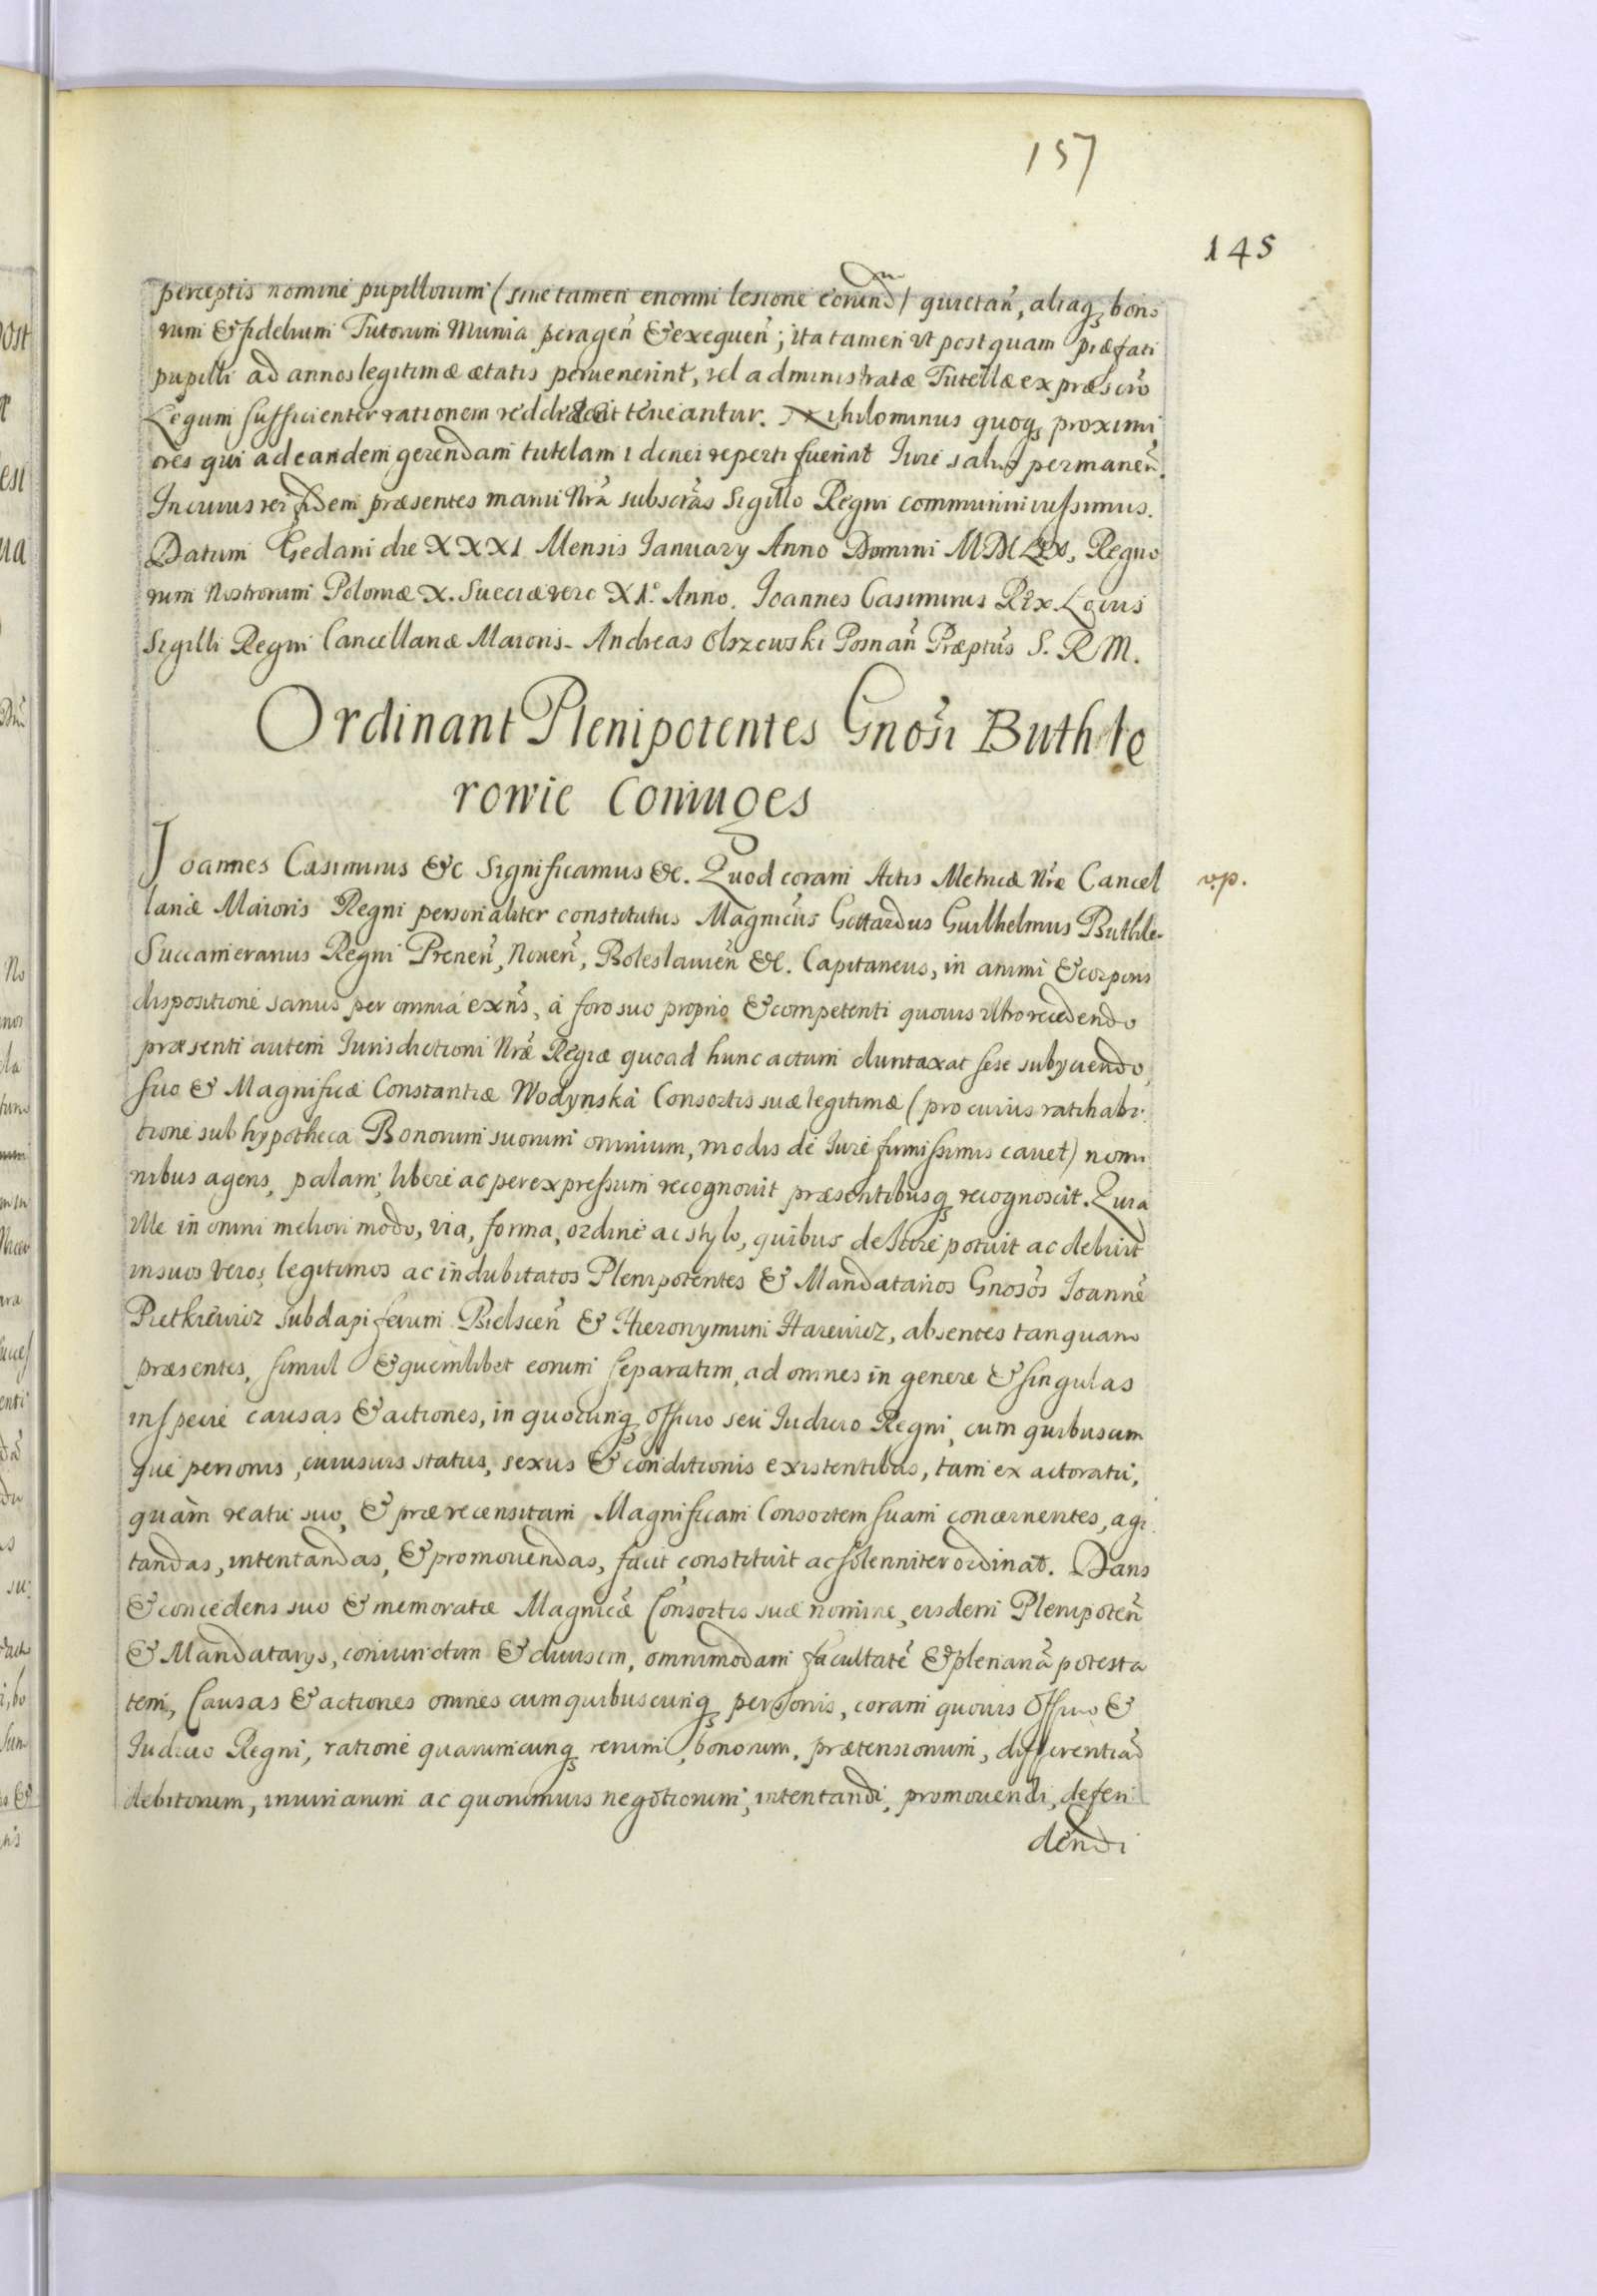 157
145
perceptis nomine pupillorum (sine tamen enormi lesione eorundm) quietañ, aliaqꝫ bono
rum & fidelium Tutorum Munia peragen̄ & exequen̄; ita tamen ut postquam præfati
pupilli ad annos legitimæ ætatis peruenerint, vel administratæ Tutellæ ex præscrō
Legum sufficienter rationem teneantur. Nihilominus quoqꝫ proximi
ores qui ad eandem gerendam tutelam idonei reperti fuerint Iure saluo permanen̄.
In cuius rei fidem præsentes manu Nrā subscrās Sigillo Regni communiri iussimus.
Datum Gedani die XXXI Mensis Ianuary Anno Domini Regno
rum Nostrorum Poloniæ X. Sueciæ vero XI.º Anno. Ioannes Casimirus Rex. Locus
Sigilli Regni Cancellariæ Maioris. Andreas Olszowski Posnañ Præptūs S. R M.
Ordinant Plenipotentes Gnosi Buthle
rowie Coniuges
Ioannes Casimirus &c Significamus &c. Quod coram Actis Metricæ Nræ Cancel
v.p.
lariæ Maioris Regni personaliter constitutus Magnicūs Gottardus Guilhelmus Buthler
Succamerarius Regni Prenen̄, Nouen̄, Boleslauien̄ &c. Capitaneus, in animi & corporis
dispositione sanus per omnia exn̄s, à foro suo proprio & competenti quouis ultro recedendo
præsenti autem Iurisdictioni Nræ Regiæ quoad hunc actum duntaxat sese subyciendo,
suo & Magnificæ Constantiæ Wodynska Consortis suæ legitimæ (pro cuius ratihabi:
tione sub hypotheca Bonorum suorum omnium, modis de Iure firmissimis cauet) nomi
nibus agens, palam, libere ac per expressum recognouit præsentibusqꝫ recognoscit. Quia
ille in omni meliori modo, via, forma, ordine ac stylo, quibus de Iure potuit ac debuit
in suos veros, legitimos ac indubitatos Plenipotentes & Mandatarios Gnosōs Ioannē
Pietkiewicz Subdapiferum Bielscen̄ & Hieronymum Harewicz, absentes tanquam
præsentes, simul & quemlibet eorum separatim, ad omnes in genere & singulas
in specie causas & actiones, in quocunqꝫ Officio seu Iudicio Regni, cum quibuscum
que personis, cuiusuis status, sexus & conditionis existentibus, tam ex actoratu,
quàm reatu suo, & præ recensitam Magnificam Consortem suam concernentes, agi
tandas, intentandas, & promouendas, facit constituit ac solenniter ordinat. Dans
& concedens suo & memoratæ Magnicæ Consortis suæ nomine, eisdem Plenipoten̄
& Mandatarys, coniunctim & diuisim, omnimodam facultatē & plenariā potesta
tem, Causas & actiones omnes cum quibuscunqꝫ personis, coram quouis Officio &
Iudicio Regni, ratione quarumcunqꝫ rerum, bonorum, prætensionum, differentiarū
debitorum, iniuriarum ac quorumuis negotiorum, intentandi, promouendi, defen
dendi